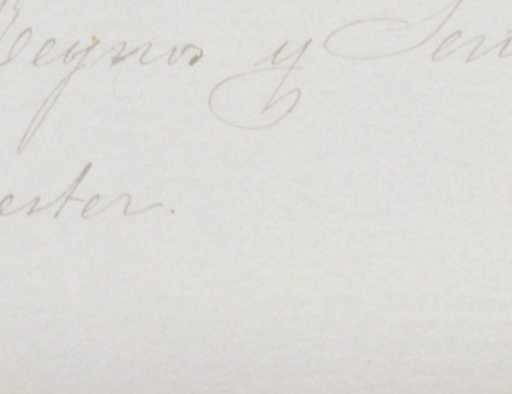 Reynos y Sen
ester.